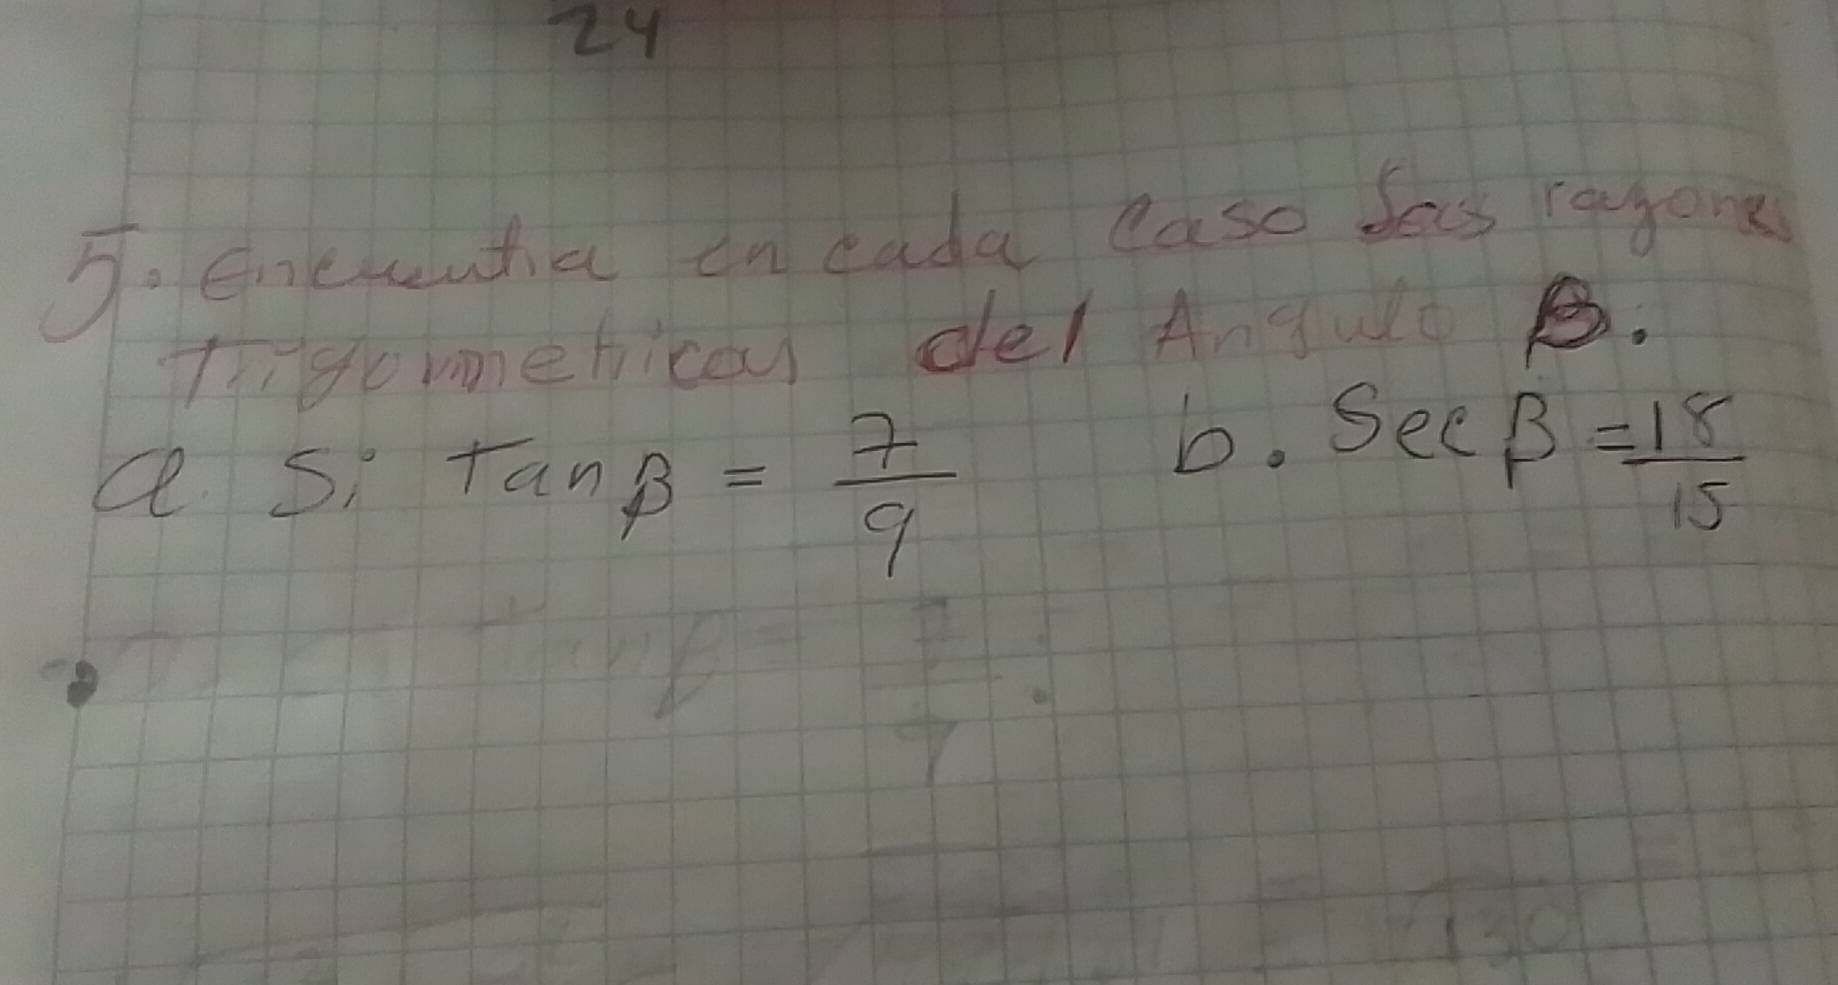 24
5. Encuentra en cada caso las razones
Trigonometricas del Angulo β.
a. Si Tan β = 7/9 b. Sec β = 18/15